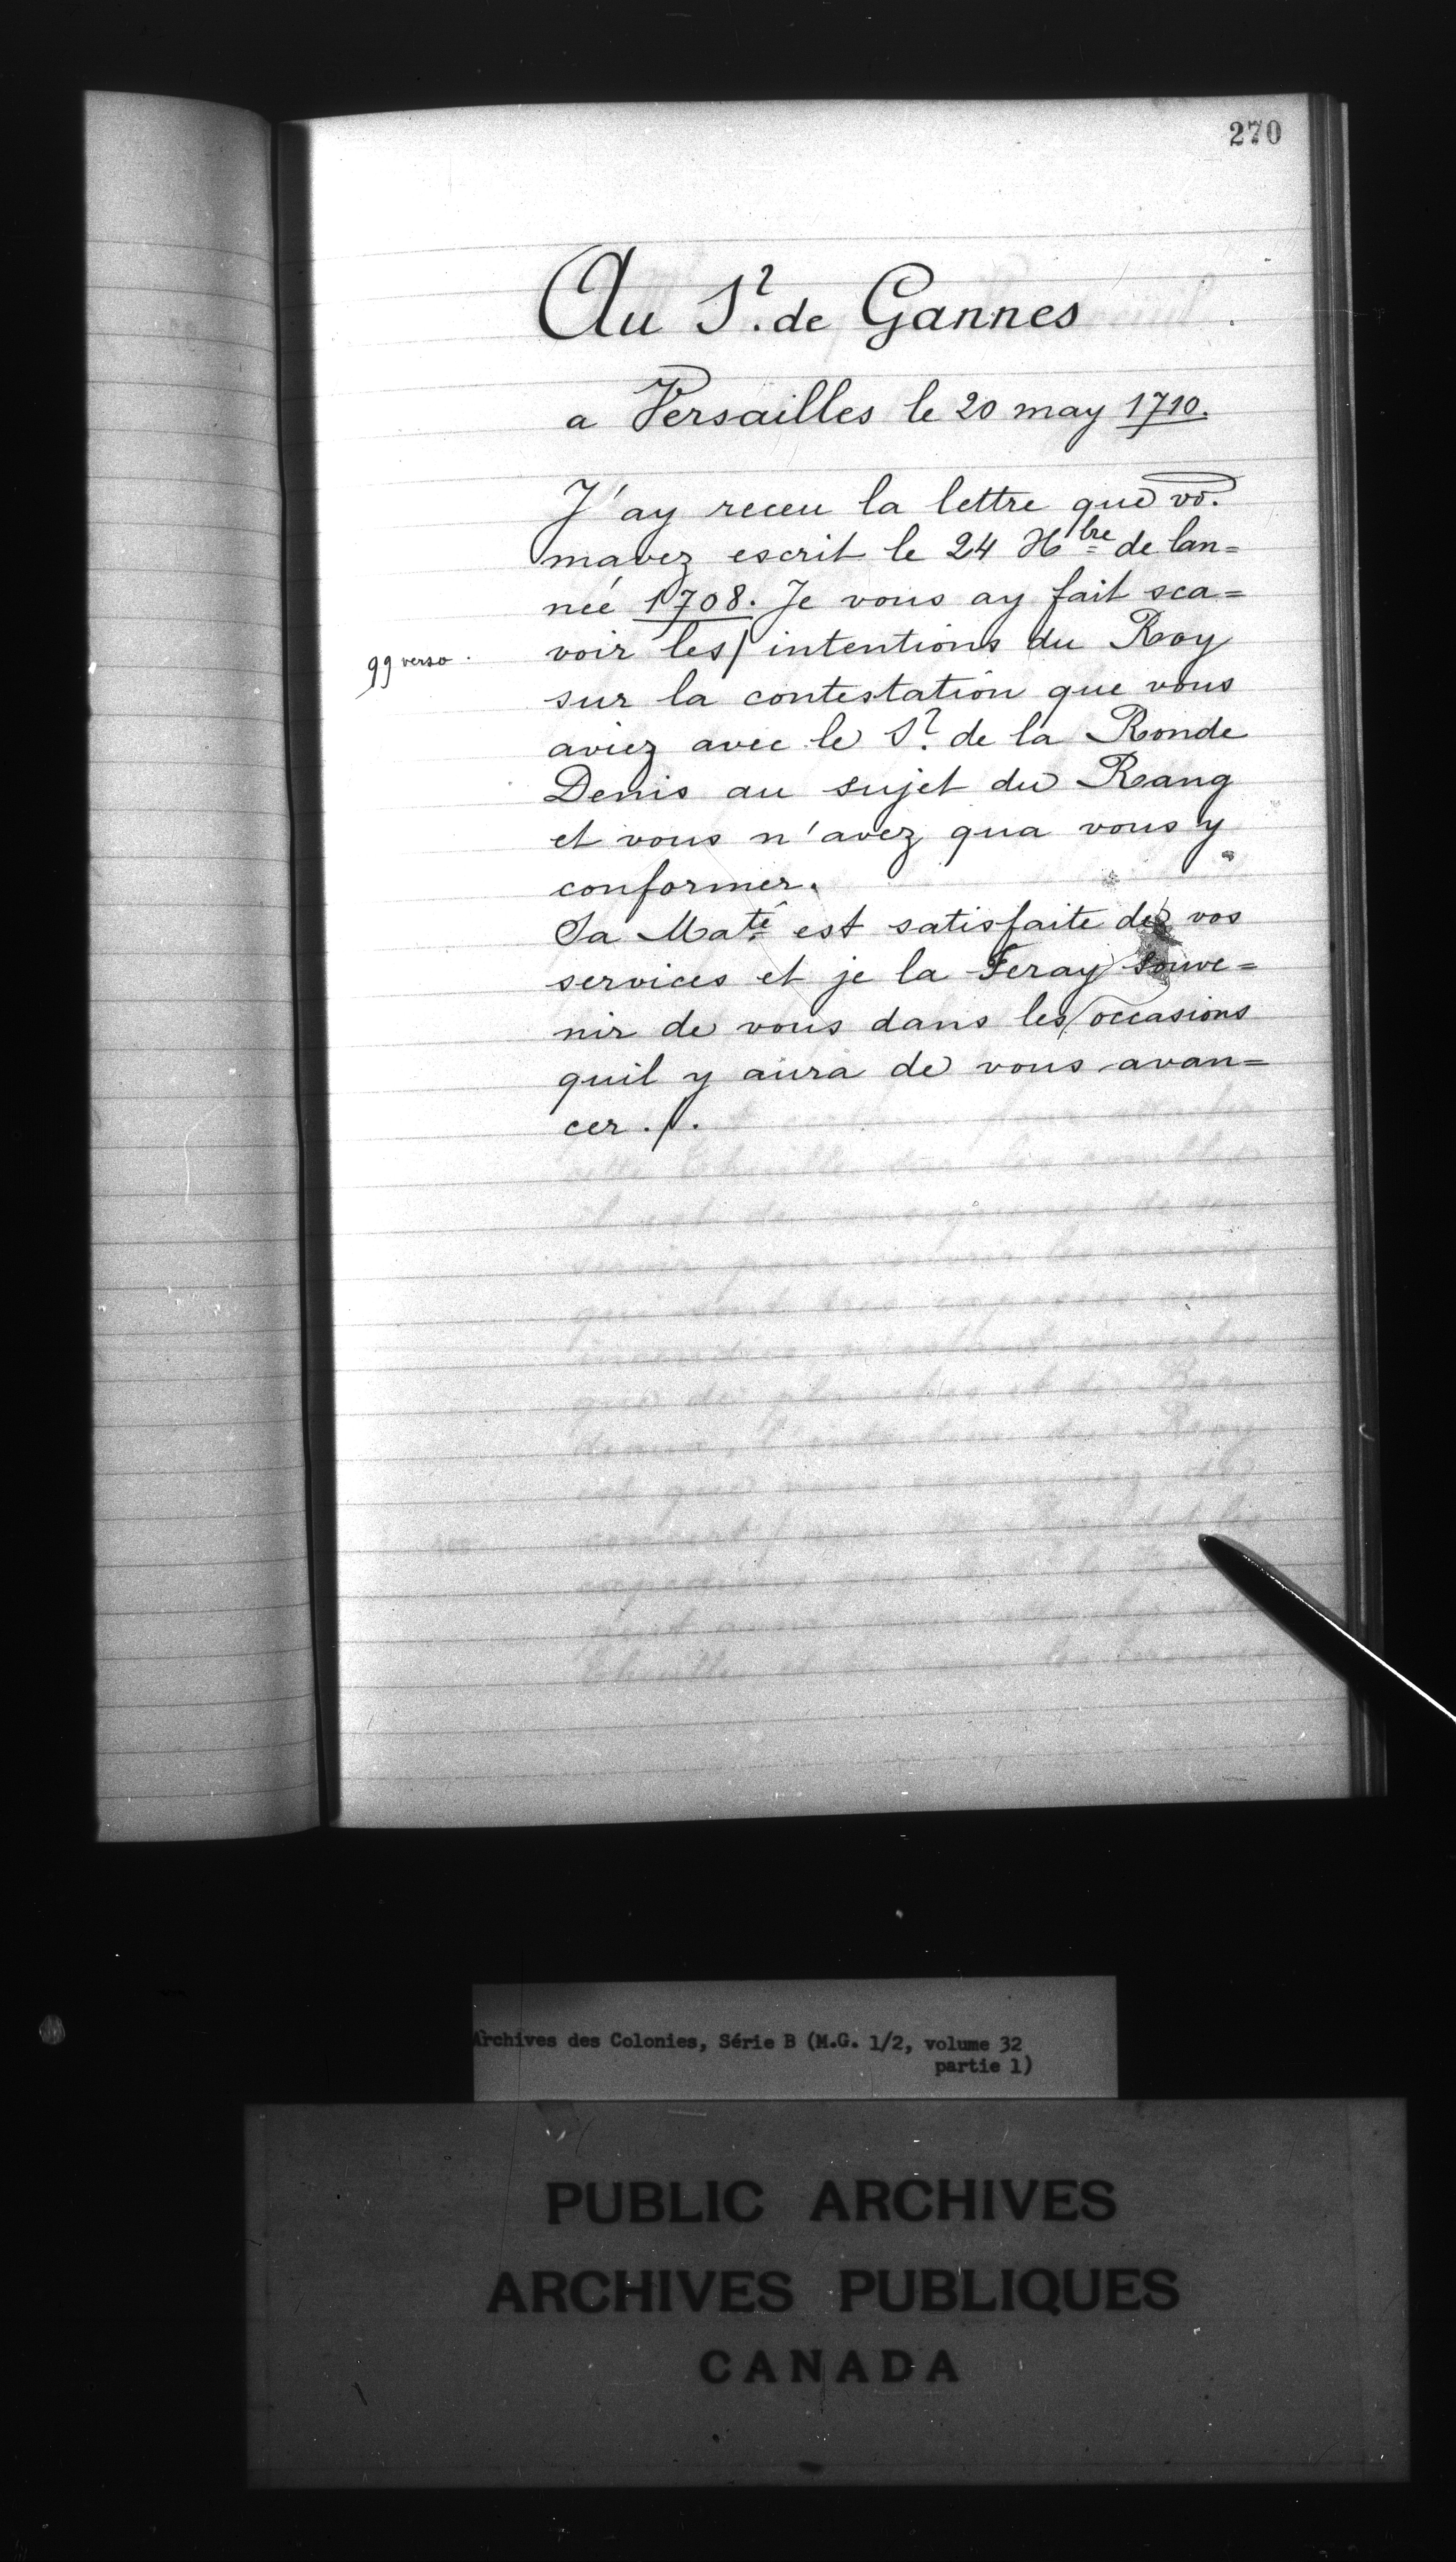 270
Au Sr. de Gannes
a Versailles le 20 may 1710.
J'ay receu la lettre que vo.
mavez escrit le 24 Xbre de lan=
neé 1708. Je vous ay fait sca=
99 verso.
voir les/ intentions du Roy
sur la contestation que vous
aviez avec le Sr. de la Ronde
Denis au sujet du Rang
et vous n'avez qua vous y
conformer.
Sa Maté est satisfaite de vos
services et je la Feray souve=
nir de vous dans les occasions
quil y aura de vous avan=
cer ./.
Archives des Colonies, Série B (M.G. 1/2, volume 32
partie 1)
PUBLIC ARCHIVES
ARCHIVES PUBLIQUES
CANADA